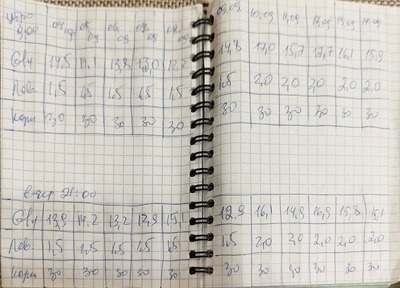 Утро 04.09 05.09 06.09 07.09 08.09 09.09 10.09 11.09 12.09 13.09 14.09
9:00 14,8 17,0 15,7 17,7 16,1 15,9
14,5 14,1 13,8 13,0
1,5 1,5 1,5 1,5 1,5 1,5 2,0 2,0 2,0 2,0 2,0
корм 30 30 30 30 30 30 30 30 30 30 30
21:00
13,9 14,2 13,2 12,9 15,1 12,9 16,1 14,9 16,9 15,8 15,1
Лев. 1,5 1,5 1,5 1,5 1,5 1,5 2,0 2,0 2,0 2,0 2,0
корм 30 30 30 30 30 30 30 30 30 30 30